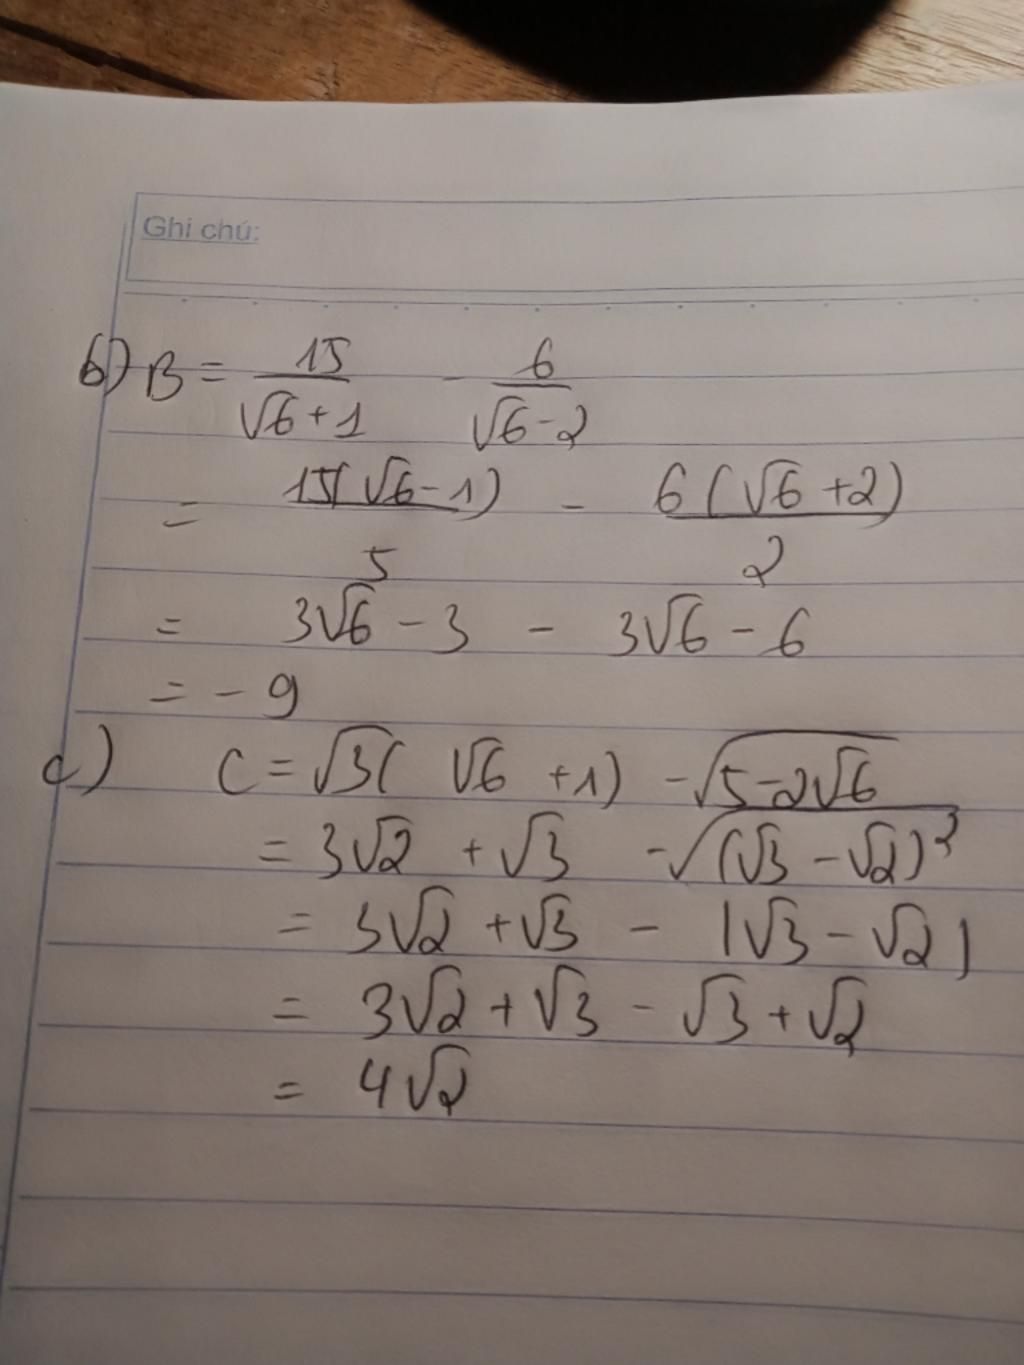 Ghi chú:
b) B = 15/(√6+1) - 6/(√6-2)
= 15(√6-1)/5 - 6(√6+2)/2
= 3√6 - 3 - 3√6 - 6
= -9
c) C = √3(√6+1) - √(5-2√6)
= 3√2 + √3 - √((√3-√2)²)
= 3√2 + √3 - |√3-√2|
= 3√2 + √3 - √3 + √2
= 4√2